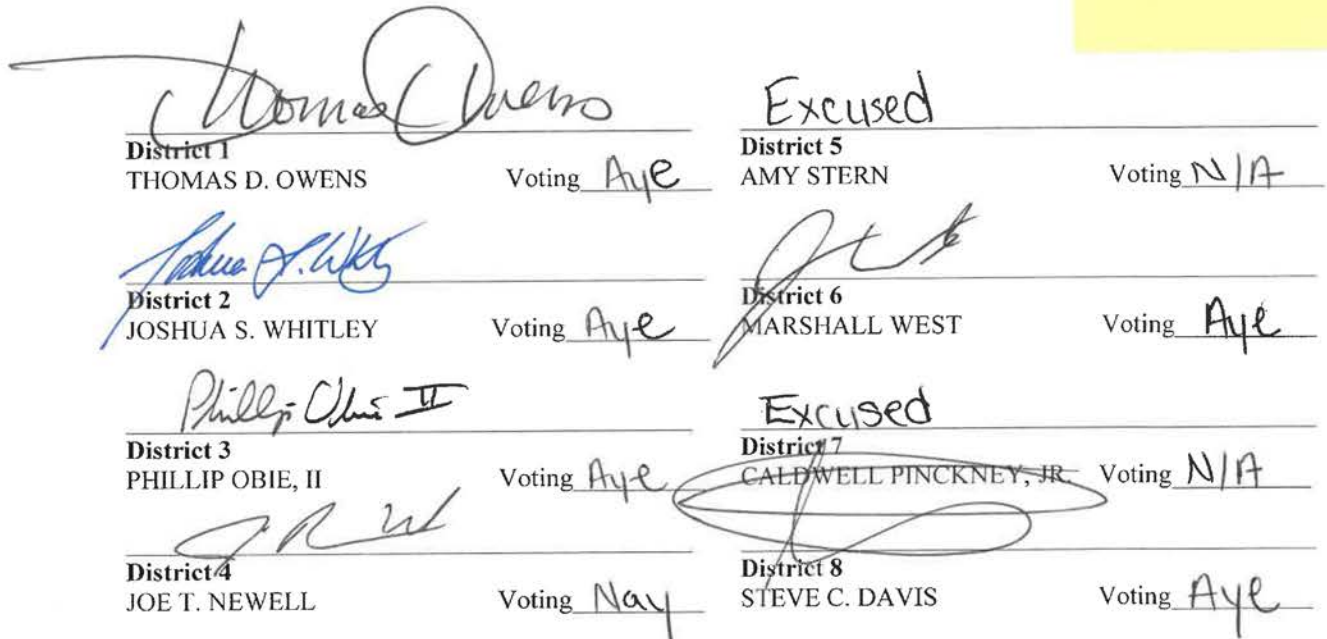 Thomas Owens
District 1
THOMAS D. OWENS Voting Aye
Joshua S. Whitley
District 2
JOSHUA S. WHITLEY Voting Aye
Phillip Obie II
District 3
PHILLIP OBIE, II Voting Aye
District 4
JOE T. NEWELL Voting Nay
Excused
District 5
AMY STERN Voting N/A
District 6
MARSHALL WEST Voting Aye
Excused
District 7
CALDWELL PINCKNEY, JR. Voting N/A
District 8
STEVE C. DAVIS Voting Aye